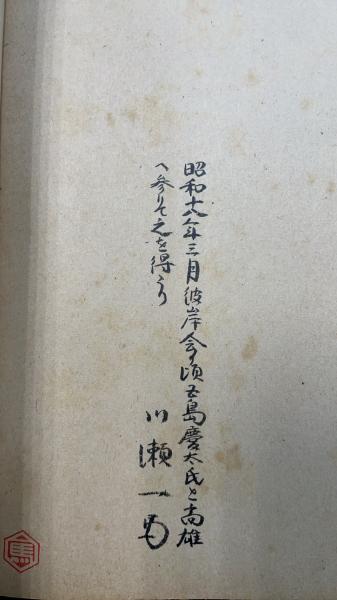 昭和十八年三月彼岸会頃五島慶太氏と高雄
へ参りて之を得たり
川瀬一馬
馬